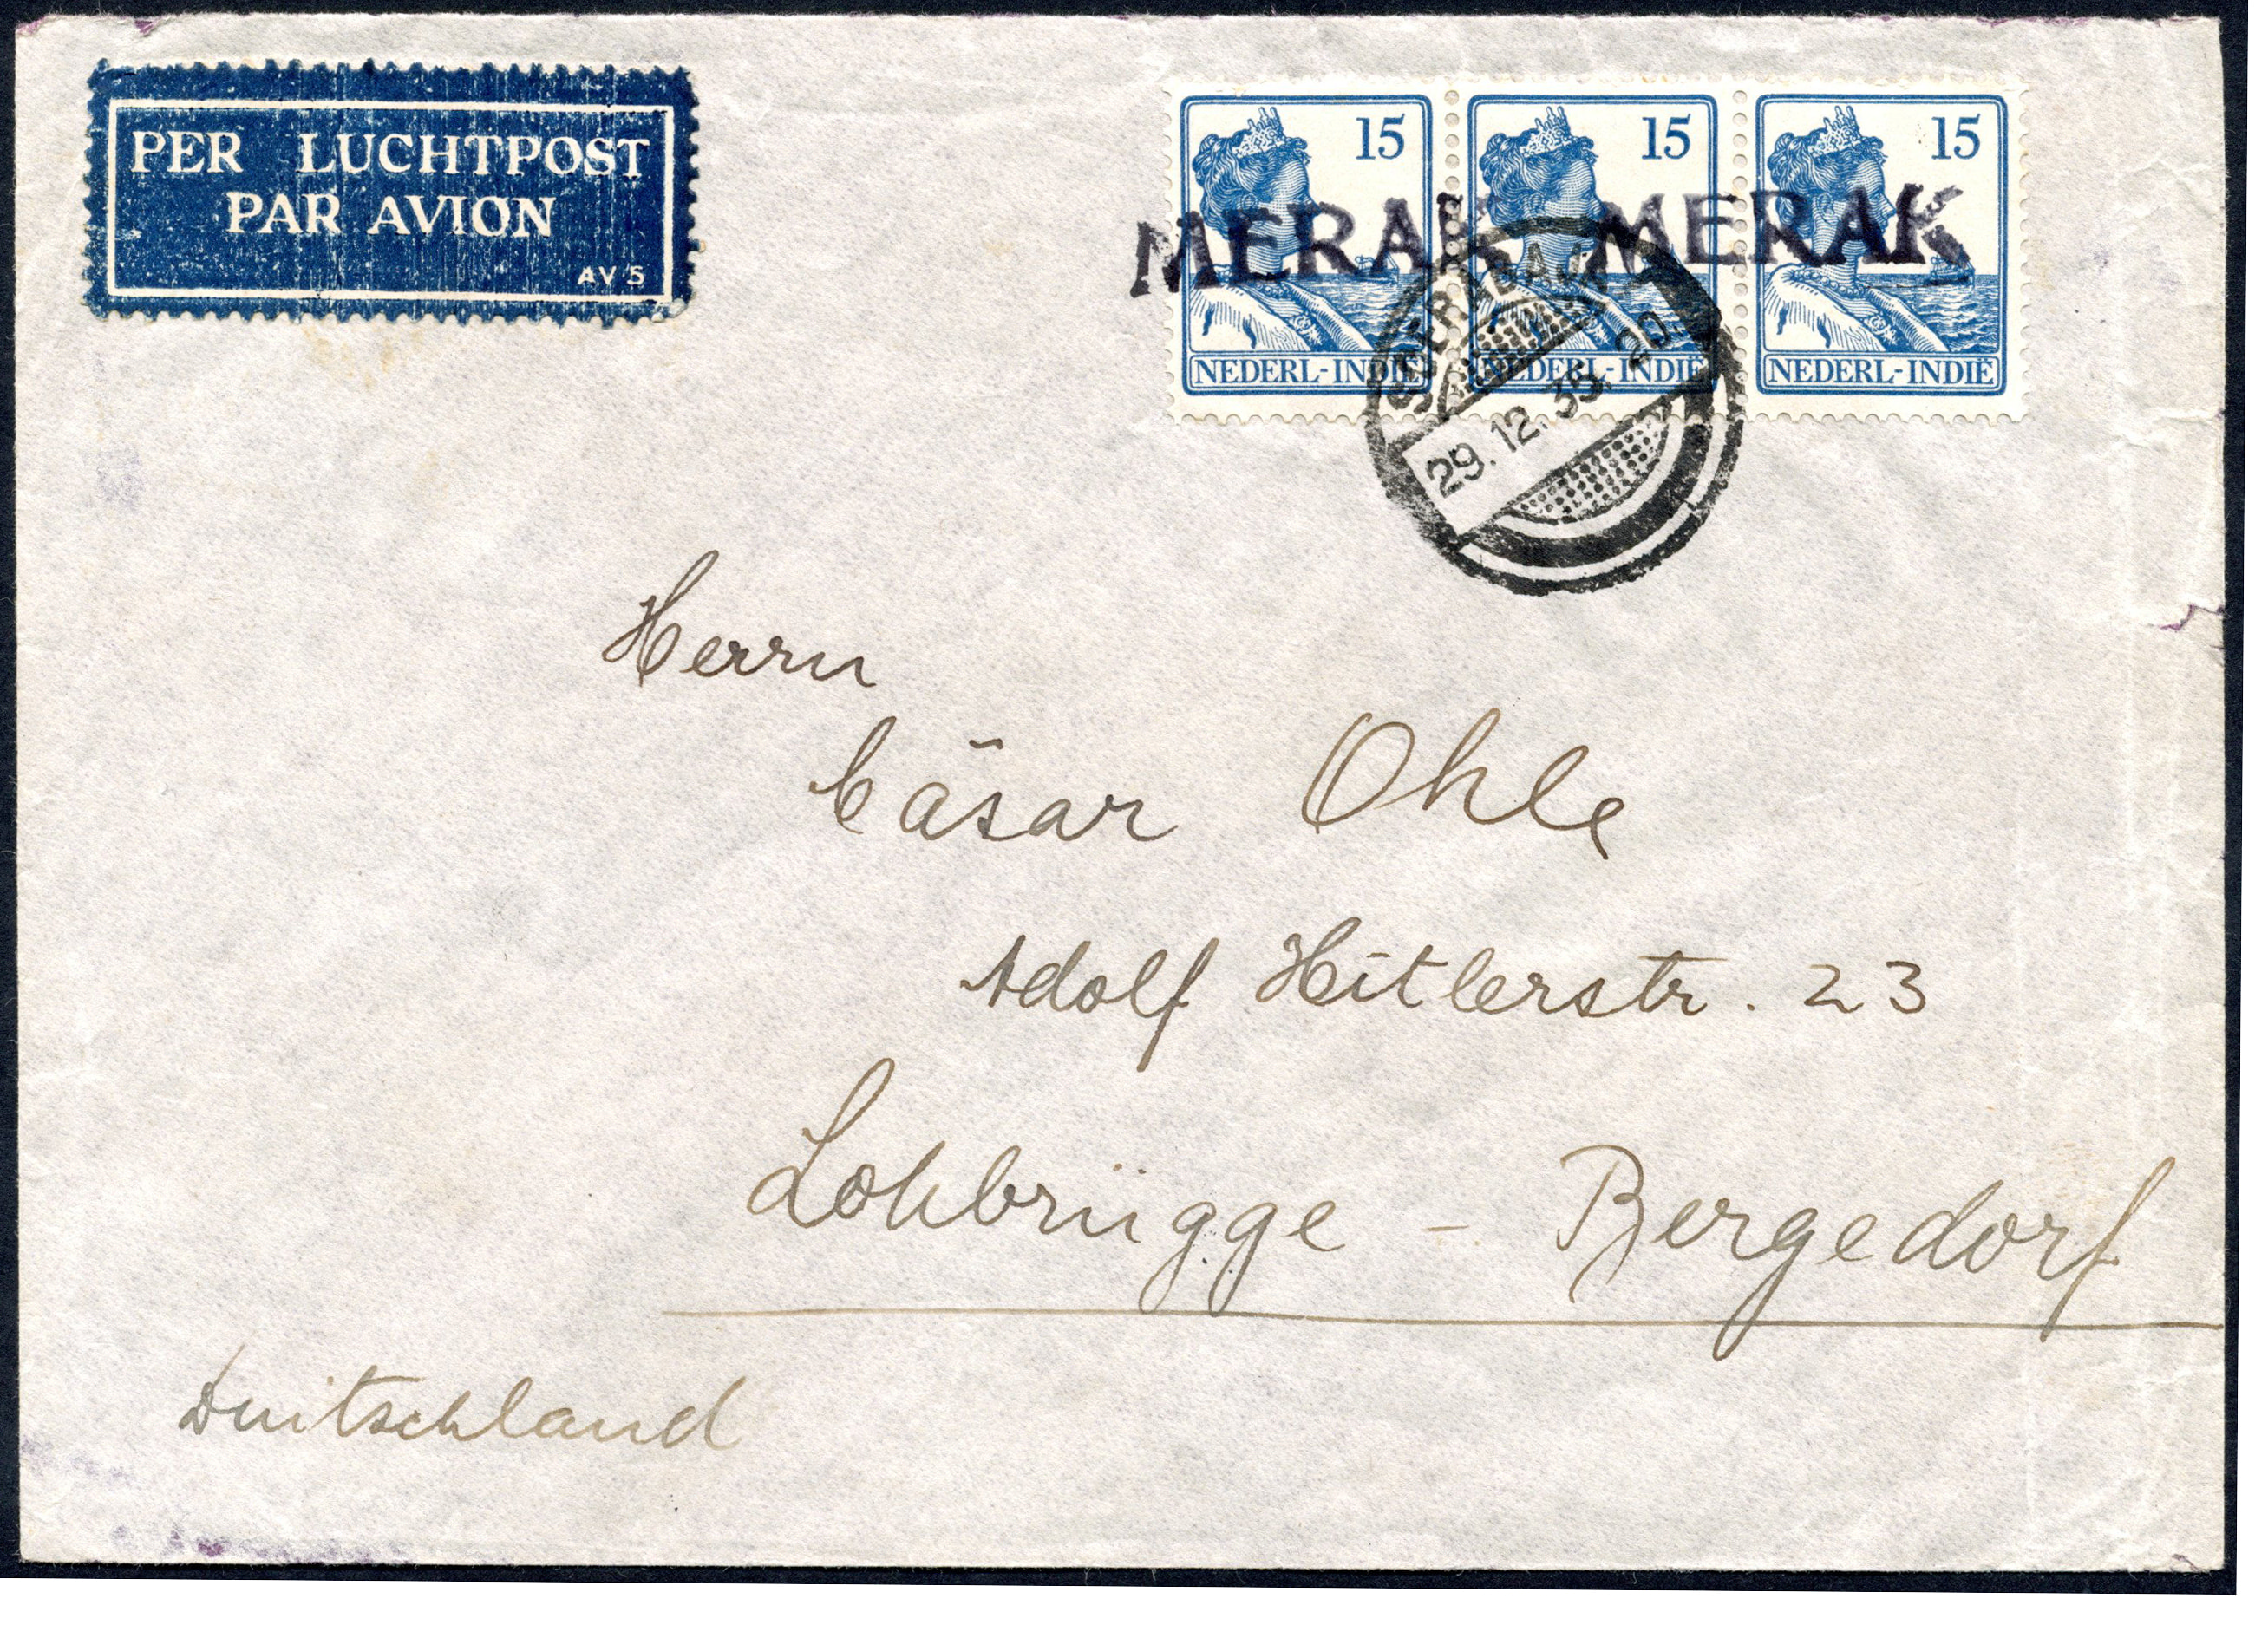 PER LUCHTPOST
PAR AVION
AV 5
15 15 15
MERAK MERAK
NEDERL-INDIË NEDERL-INDIË NEDERL-INDIË
SOERABAJA
29.12.35.20
Herrn
Cäsar Ohle
Adolf Hitlerstr. 23
Lohbrügge - Bergedorf
Duitschland